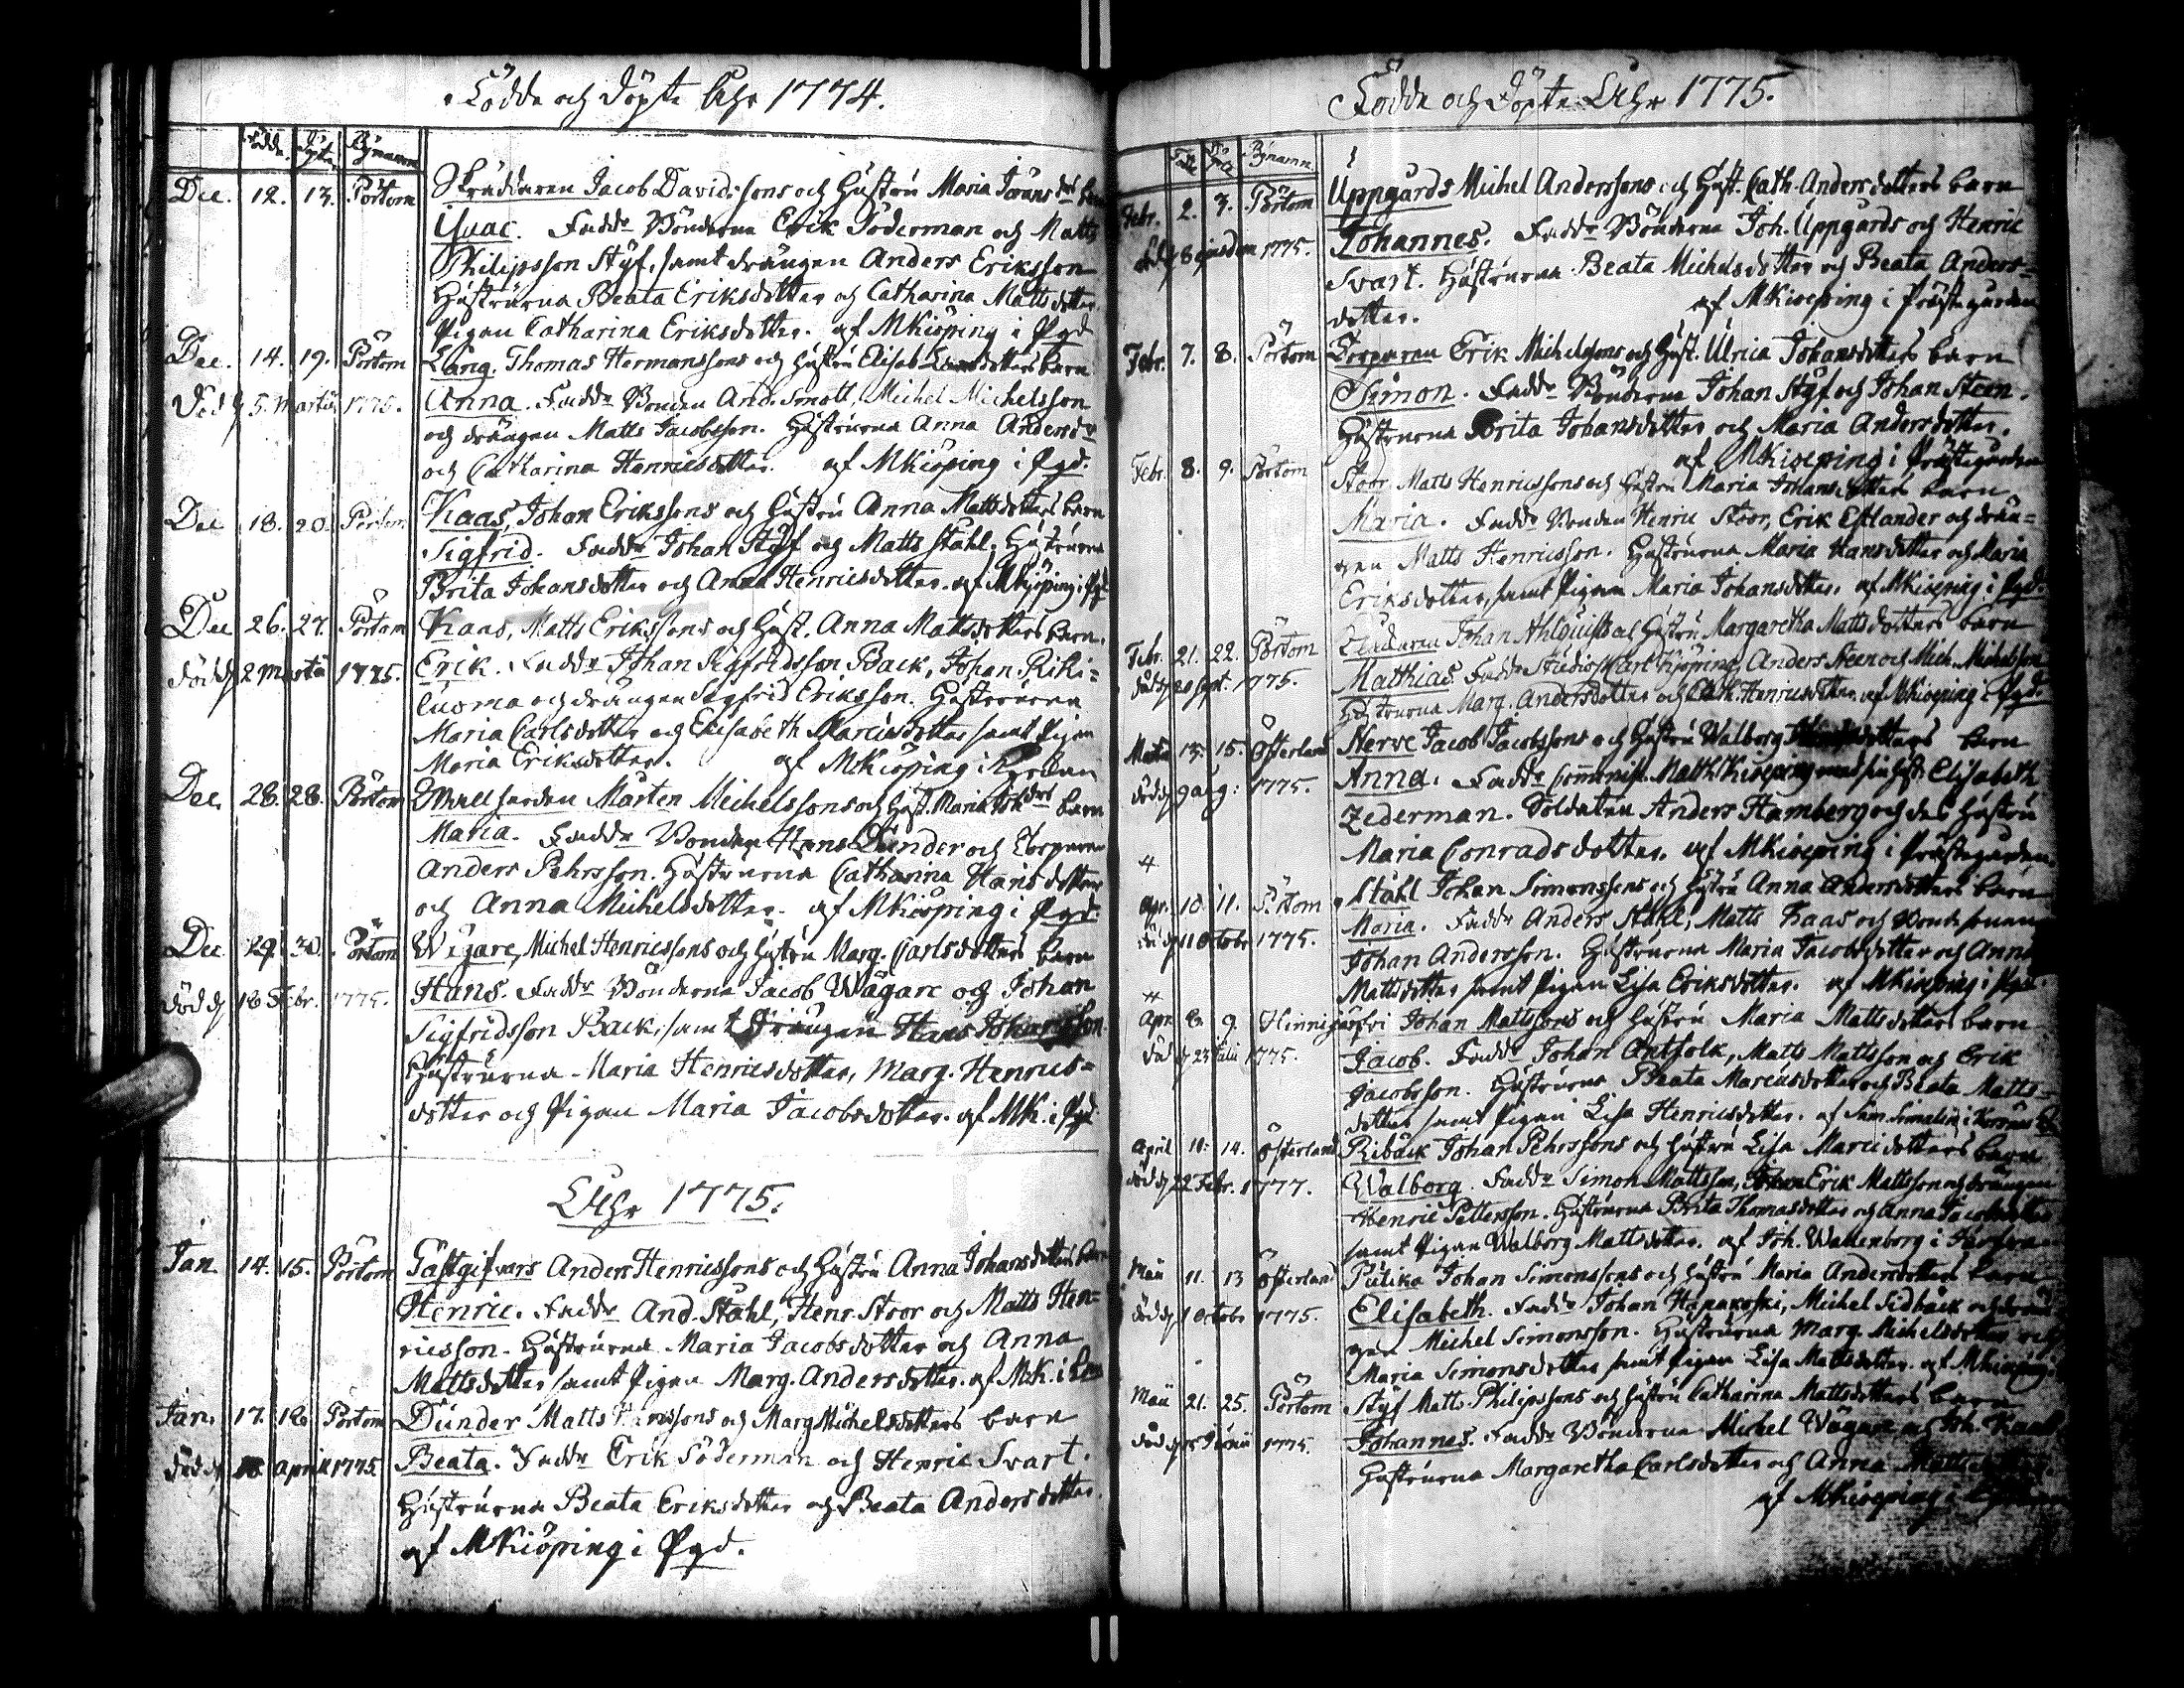 Födde och Döpte Åhr 1774.
Födde. Döpte Bynamn
Dec. 12. 13. Pörtom Skräddaren Jacob Davidssons och Hustru Maria Jöransdrs barn
Isaac. Faddr Bönderne Erik Söderman och Matts
Philipsson Styf, samt drängen Anders Eriksson
Hustrurna Beata Eriksdotter och Catharina Mattsdotter.
Pigan Catharina Eriksdotter. af MKiöping i Pgd
Dec. 14. 19. Pörtom Lång. Thomas Hermanssons och Hustru Elisab. dotters barn
Död d 5 Martii 1775. Anna. Faddr Bonden And. Smått, Michel Michelsson
och drängen Matts Jacobsson. Hustrurna Anna Andersdr
och Catharina Henricsdotter. af MKiöping i Pgd.
Dec 18. 20. Pörtom Kaas, Johan Erikssons och Hustru Anna Mattsdotters barn
Sigfrid. Faddr Johan Styf och Matts Stahl. Hustrurna
Brita Johansdotter och Anna Henricsdotter. af MKjöping i Pgd
Dec 26. 27. Pörtom Kaas, Matts Erikssons och Hust. Anna Mattsdotters barn.
Död d 2 Martii 1775. Erik. Faddr Johan Sigfridsson Back, Johan Riki=
luoma och drängen Sigfrid Eriksson. Hustrurna
Maria Carlsdotter och Elisabeth Marcusdotter samt Pigan
Maria Eriksdotter. af MKiöping i
Dec. 28. 28. Pörtom Mårten Michelssons och Hust. Maria drs barn
Maria. Faddr Bonden Hans Dunder och Torparen
Anders Pehrsson. Hustrurna Catharina Hansdotter
och Anna Michelsdotter. af MKiöping i Pgd.
Dec 29. 30. Pörtom Wägare, Michel Henricssons och Hustru Marg. Carlsdotters barn
Död d 16 Febr. 1775. Hans. Faddr Bönderna Jacob Wägare och Johan
Sigfridsson Back, samt Drängen Hans Johansson
Hustrurna Maria Henricsdotter, Marg. Henrics=
dotter och Pigan Maria Jacobsdotter. af MK. i Pgd
Åhr 1775.
Jan 14. 15. Pörtom Gästgifvars Anders Henricssons och Hustru Anna Johansdotters barn
Henric. Faddr And. Stahl, Henr. Stoor och Matts Hen=
ricsson. Hustrurna Maria Jacobsdotter och Anna
Mattsdotter samt Pigan Marg. Andersdotter. af MK. i
Jan. 17. 18. Pörtom Dunder Matts Hanssons och Marg Michelsdotters barn
Död d April 1775 Beata. Faddr Erik Söderman och Henric Svart.
Hustrurna Beata Eriksdotter och Beata Andersdotter.
af MKiöping i Pgd.
Födde och Döpte Åhr 1775.
Bynamn
Febr. 2. 3. Pörtom Uppgårds Michel Anderssons och Hust. Cath. Andersdotters barn
Död d 8 ejusdem 1775. Johannes. Faddr Bönderne Joh. Uppgårds och Henric
Svart. Hustrurna Beata Michelsdotter och Beata Anders=
dotter. af MKiöping i Prästegården
Febr. 7. 8. Pörtom Torparen Erik Michelssons och Hust. Ulrica Johansdotters barn
Simon. Faddr Bönderne Johan Styf och Johan Steen.
Hustrurna Brita Johansdotter och Maria Andersdotter.
af MKiöping i Prästegården
Febr. 8. 9. Pörtom Stoor Matts Henricssons och Hustru Maria Johansdotters barn
Maria. Faddr Bonden Henric Stoor, Erik Estlander och drän=
gen Matts Henricsson. Hustrurna Maria Hansdotter och Maria
Eriksdotter, samt Pigan Maria Johansdotter. af MKiöping i Pgd.
Febr. 21. 22. Pörtom Johan Ahlquists och Hustru Margaretha Mattsdotters barn
Död d 20 Sept. 1775. Matthias. Faddr Studios. Carl Kjöping, Anders Steen och Mich. Michelsson
Hustrurna Marg. Andersdotter och Cath. Henricsdotter. af MKiöping i Pgd.
Martii 13. 15. Österland Nerve Jacob Jacobssons och Hustru Walborg dotters barn
Död d 9 aug: 1775. Anna. Faddr Comminist. Matth. Kiöping med sin Hust. Elisabeth
Zederman. Soldaten Anders Hamberg och des Hustru
Maria Conradsdotter. af MKiöping i Prästegården.
Apr. 10. 11. Pörtom Stahl Johan Simonssons och Hustru Anna Andersdotters barn
Död d 11 Octobr 1775. Maria. Faddr Anders Stahl, Matts Kaas och Bondesonen
Johan Andersson. Hustrurna Maria Jacobsdotter och Anna
Mattsdotter samt Pigan Lisa Eriksdotter. af MKiöping i Pgd.
Apr 8. 9. Hinnijärfvi Johan Mattssons och Hustru Maria Mattsdotters barn
Död d 23 Julii 1775. Jacob. Faddr Johan Antfolk, Matts Mattsson och Erik
Jacobsson. Hustrurna Beata Marcusdotter och Beata Matts=
dotter samt Pigan Lisa Henricsdotter. af Sam. i
April 10. 14. Österland Ribäck Johan Pehrssons och Hustru Lisa Marcidotters barn
Död d 22 Febr. 1777. Walborg. Faddr Simon Mattsson, Erik Mattsson och drängen
Henric Pettersson. Hustrurna Brita Thomasdotter och Anna Jacobsdotter
samt Pigan Walborg Mattsdotter. af Joh. Wallenborg i
Maii 11. 13 Österland Putika Johan Simonssons och Hustru Maria Andersdotters barn
Död d 1 Octobr 1775. Elisabeth. Faddr Johan Hapakoski, Michel Sidbäck och drän
gen Michel Simonsson. Hustrurna Marg. Michelsdotter och
Maria Simonsdotter samt Pigan Lisa Mattsdotter. af MKiöping
Maii 21. 25. Pörtom Styf Matts Philipssons och Hustru Catharina Mattsdotters barn
Död d Junii 1775. Johannes. Faddr Bönderne Michel Wägare och Joh. Kaas
Hustrurna Margaretha Carlsdotter och Anna Mattsdotter.
af MKiöping i